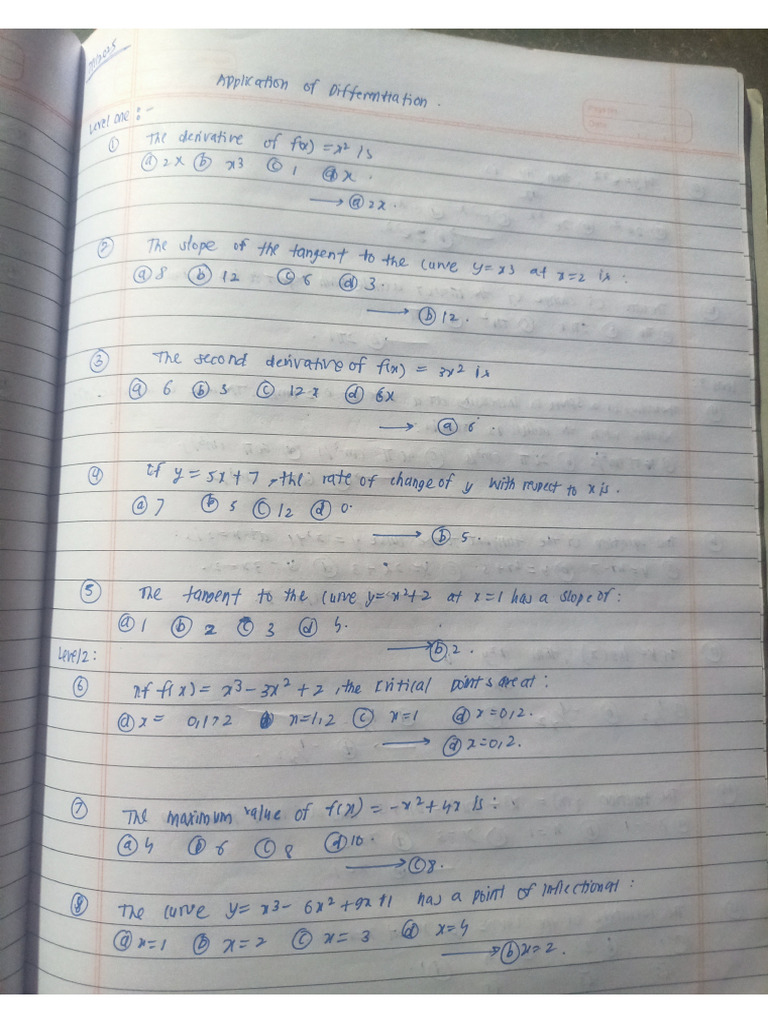 Application of Differntiation.
Level one :-
① The derivative of f(x) = x² is
ⓐ 2x ⓑ x3 ⓒ 1 ⓓ x.
→ ⓐ 2x.
② The slope of the tangent to the curve y= x3 at x=2 is:
ⓐ 8 ⓑ 12 ⓒ 6 ⓓ 3
→ ⓑ 12.
③ The second derivative of f(x) = 3x² is
ⓐ 6 ⓑ 3 ⓒ 12x ⓓ 6x
→ ⓐ 6.
④ If y = 5x+7, the rate of change of y with respect to x is.
ⓐ 7 ⓑ 5 ⓒ 12 ⓓ 0.
→ ⓑ 5.
⑤ The tangent to the curve y= x²+2 at x=1 has a slope of:
ⓐ 1 ⓑ 2 ⓒ 3 ⓓ 4.
→ ⓑ 2.
Level 2:
⑥ If f(x) = x3 - 3x² + 2, the critical points are at:
ⓐ x= 0,1,2 ⓑ x=1,2 ⓒ x=1 ⓓ x=0,2.
→ ⓓ x=0,2.
⑦ The maximum value of f(x) = -x²+4x is:
ⓐ 4 ⓑ 6 ⓒ 8 ⓓ 10.
→ ⓒ 8.
⑧ The curve y= x3 - 6x²+9x+1 has a point of inflectionat:
ⓐ x=1 ⓑ x=2 ⓒ x= 3 ⓓ x=4
→ ⓑ x=2.